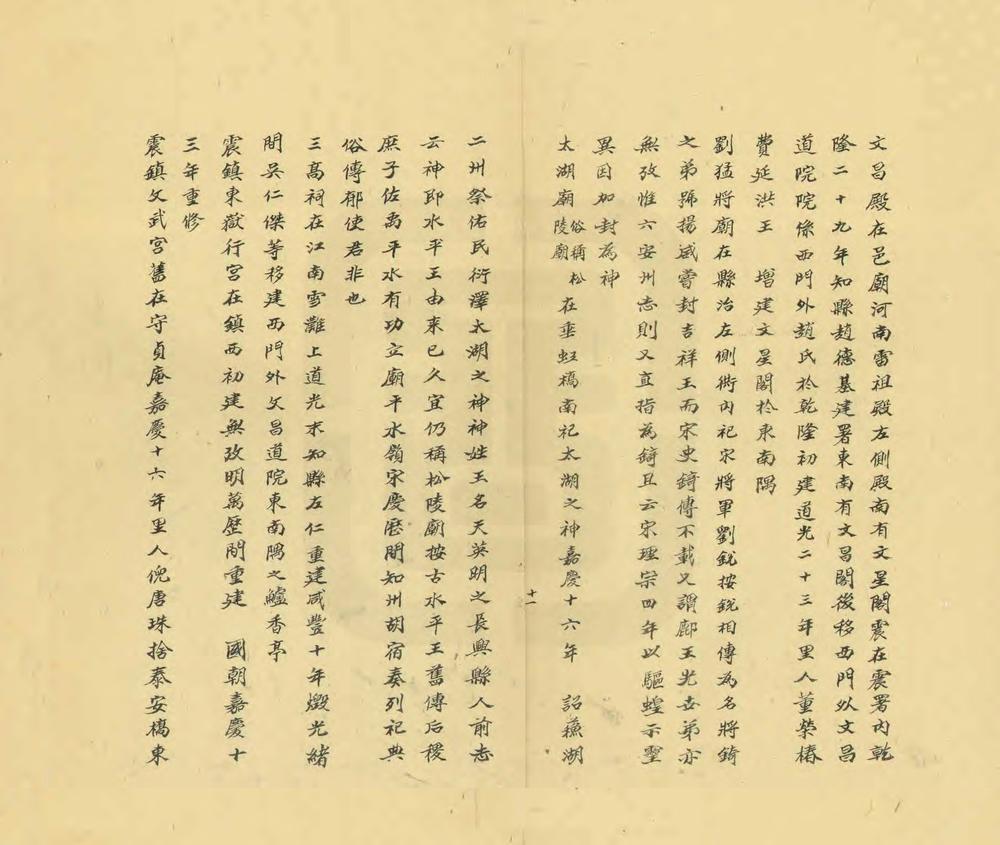 文昌殿在邑廟河南雷祖殿左側殿南有文星閣震在震署內乾
隆二十九年知縣趙德基建署東南有文昌閣後移西門外文昌
道院院係西門外趙氏於乾隆初建道光二十三年里人董榮椿
費延洪王　增建文星閣於東南隅
劉猛將廟在縣治左側街內祀宋將軍劉銳按銳相傳為名將錡
之弟號揚威嘗封吉祥王而宋史錡傳不載又謂鄜王光世弟亦
無攷惟六安州志則又直指為錡且云宋理宗四年以驅蝗示靈
異因加封為神
太湖廟俗稱松陵廟在垂虹橋南祀太湖之神嘉慶十六年　詔蘇湖
十一
二州祭佑民衍澤太湖之神神姓王名天英明之長興縣人前志
云神即水平王由來已久宜仍稱松陵廟按古水平王舊傳后稷
庶子佐禹平水有功立廟平水嶺宋慶歷間知州胡宿奏列祀典
俗傳郁使君非也
三高祠在江南雪灘上道光末知縣左仁重建咸豐十年燬光緒
間吳仁傑等移建西門外文昌道院東南隅之鱸香亭
震鎮東嶽行宮在鎮西初建無攷明萬歷間重建　國朝嘉慶十
三年重修
震鎮文武宮舊在守貞庵嘉慶十六年里人倪唐珠捨泰安橋東